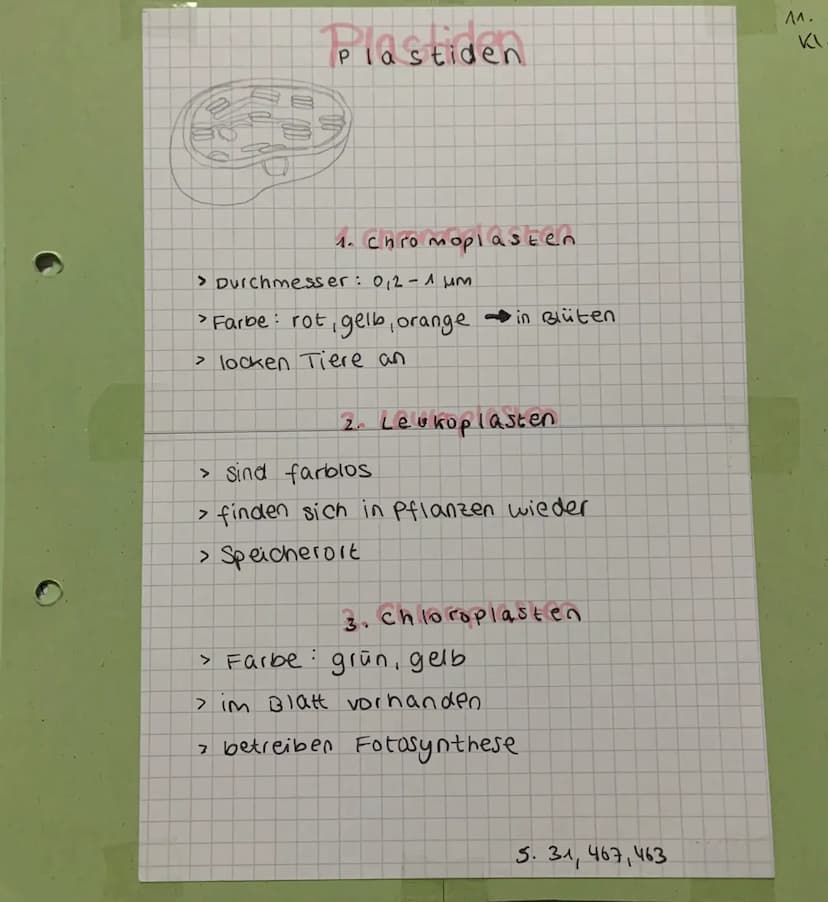 11.
Kl
Plastiden
1. Chromoplasten
> Durchmesser: 0,2 - 1 µm
> Farbe: rot, gelb, orange → in Blüten
> locken Tiere an
2. Leukoplasten
> sind farblos
> finden sich in Pflanzen wieder
> Speicherort
3. Chloroplasten
> Farbe: grün, gelb
> im Blatt vorhanden
> betreiben Fotosynthese
S. 31, 467, 463